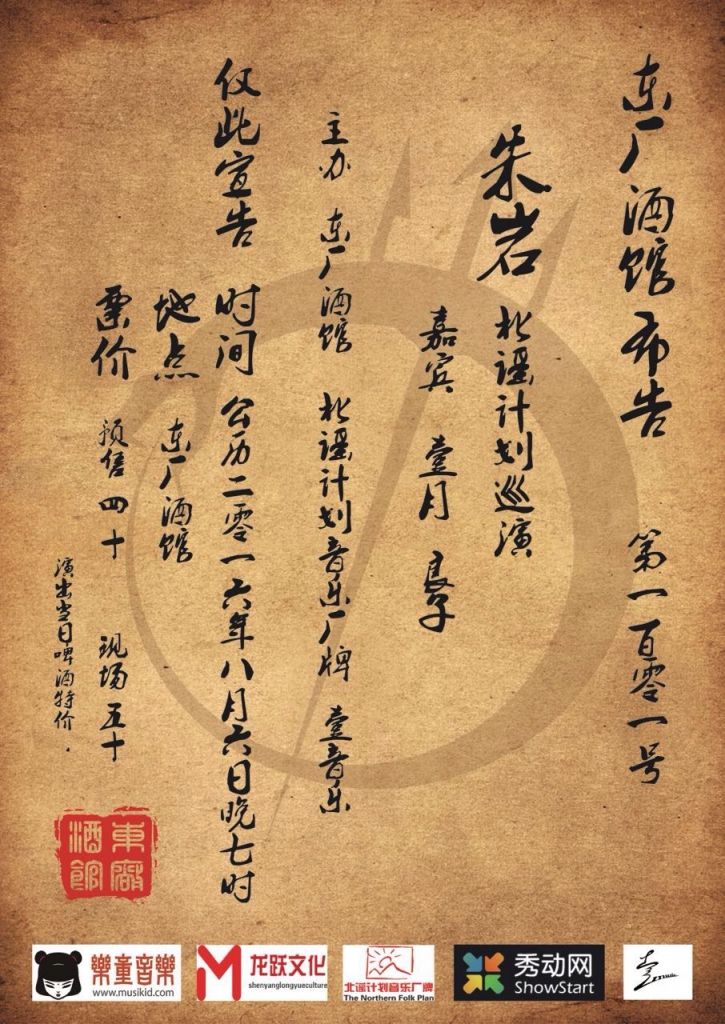 东厂酒馆布告 第一百零一号
朱岩 北谣计划巡演
嘉宾 壹月 良子
主办 东厂酒馆 北谣计划音乐厂牌 壹音乐
仅此宣告
时间 公历二零一六年八月六日晚七时
地点 东厂酒馆
票价 预售四十 现场五十
演出当日啤酒特价.
東廠酒館
樂童音樂
www.musikid.com
龙跃文化
shenyanglongyueculture
北谣计划音乐厂牌
The Northern Folk Plan
秀动网
ShowStart